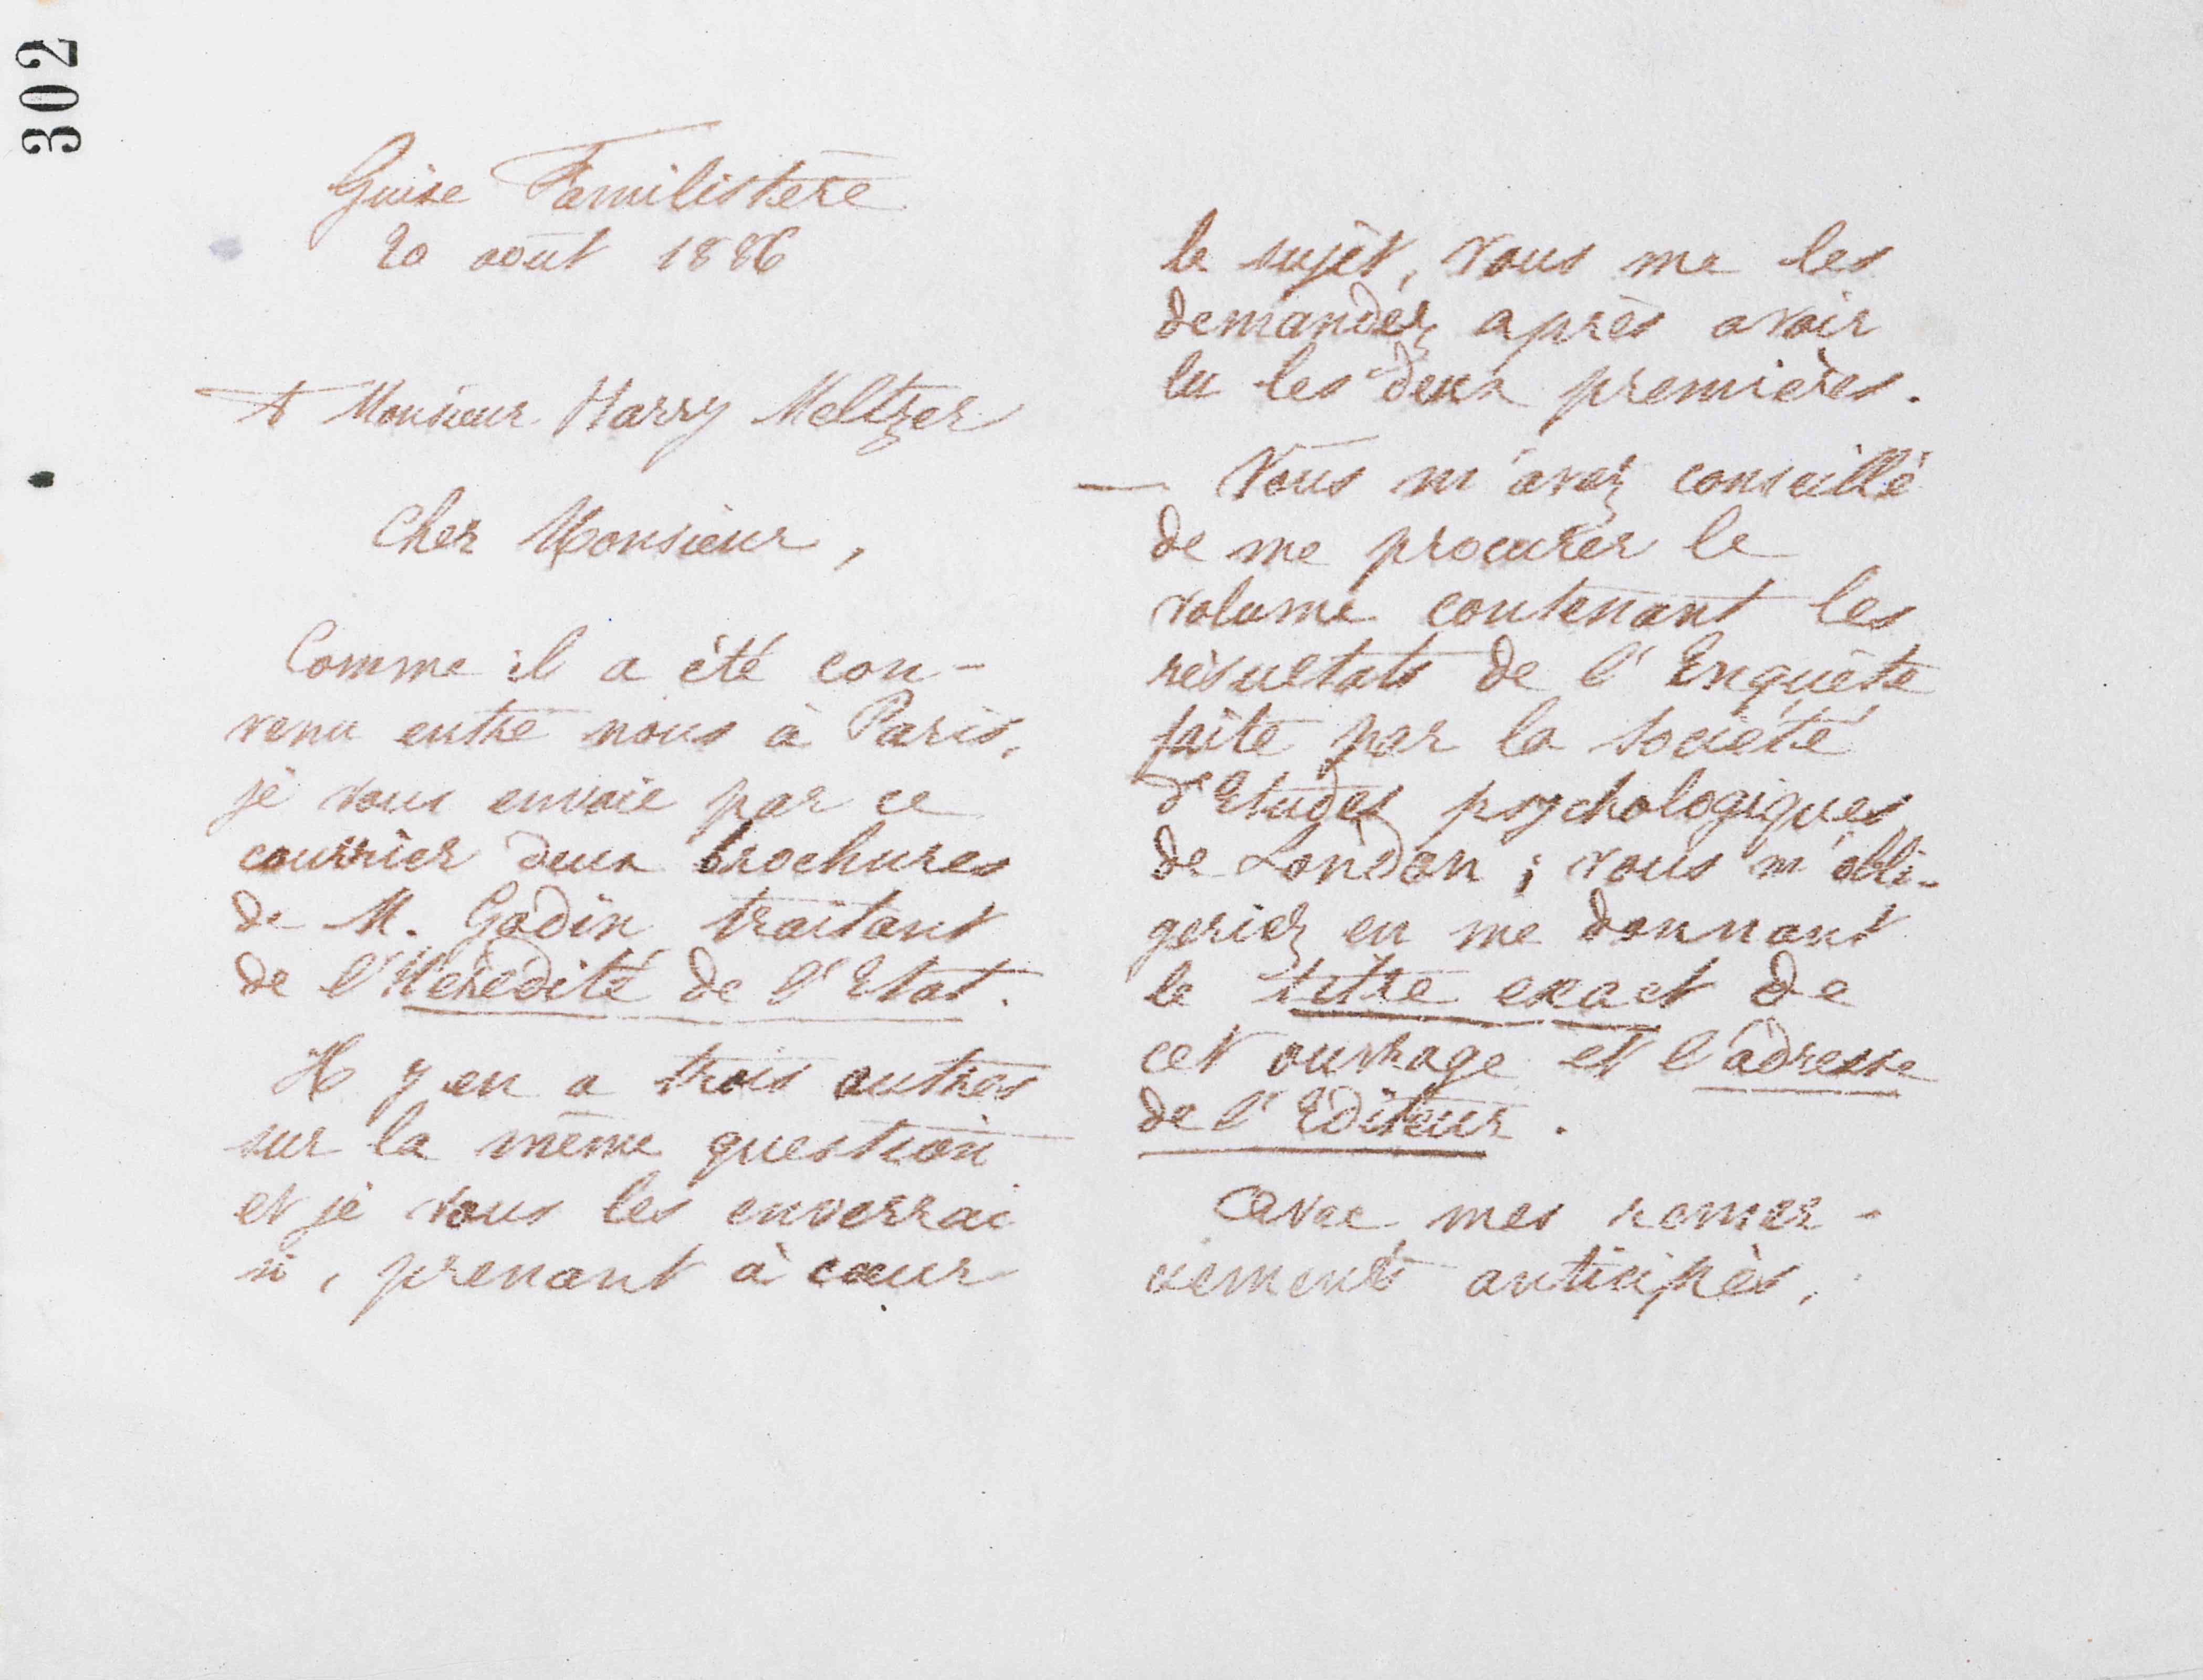 302
Guise Familistère
20 août 1886
A Monsieur Harry Meltzer
Cher Monsieur,
Comme il a été con-
venu entre nous à Paris,
je vous envoie par ce
courrier deux brochures
de M. Godin traitant
de l'Hérédité de l'Etat.
Il y en a trois autres
sur la même question
et je vous les enverrai
si, prenant à cœur
le sujet, vous me les
demandez après avoir
lu les deux premières.
— Vous m'avez conseillé
de me procurer le
volume contenant les
résultats de l'Enquête
faite par la Société
d'Etudes psychologiques
de London ; vous m'obli-
geriez en me donnant
le titre exact de
cet ouvrage et l'adresse
de l'Editeur.
Avec mes remer-
ciements anticipés,